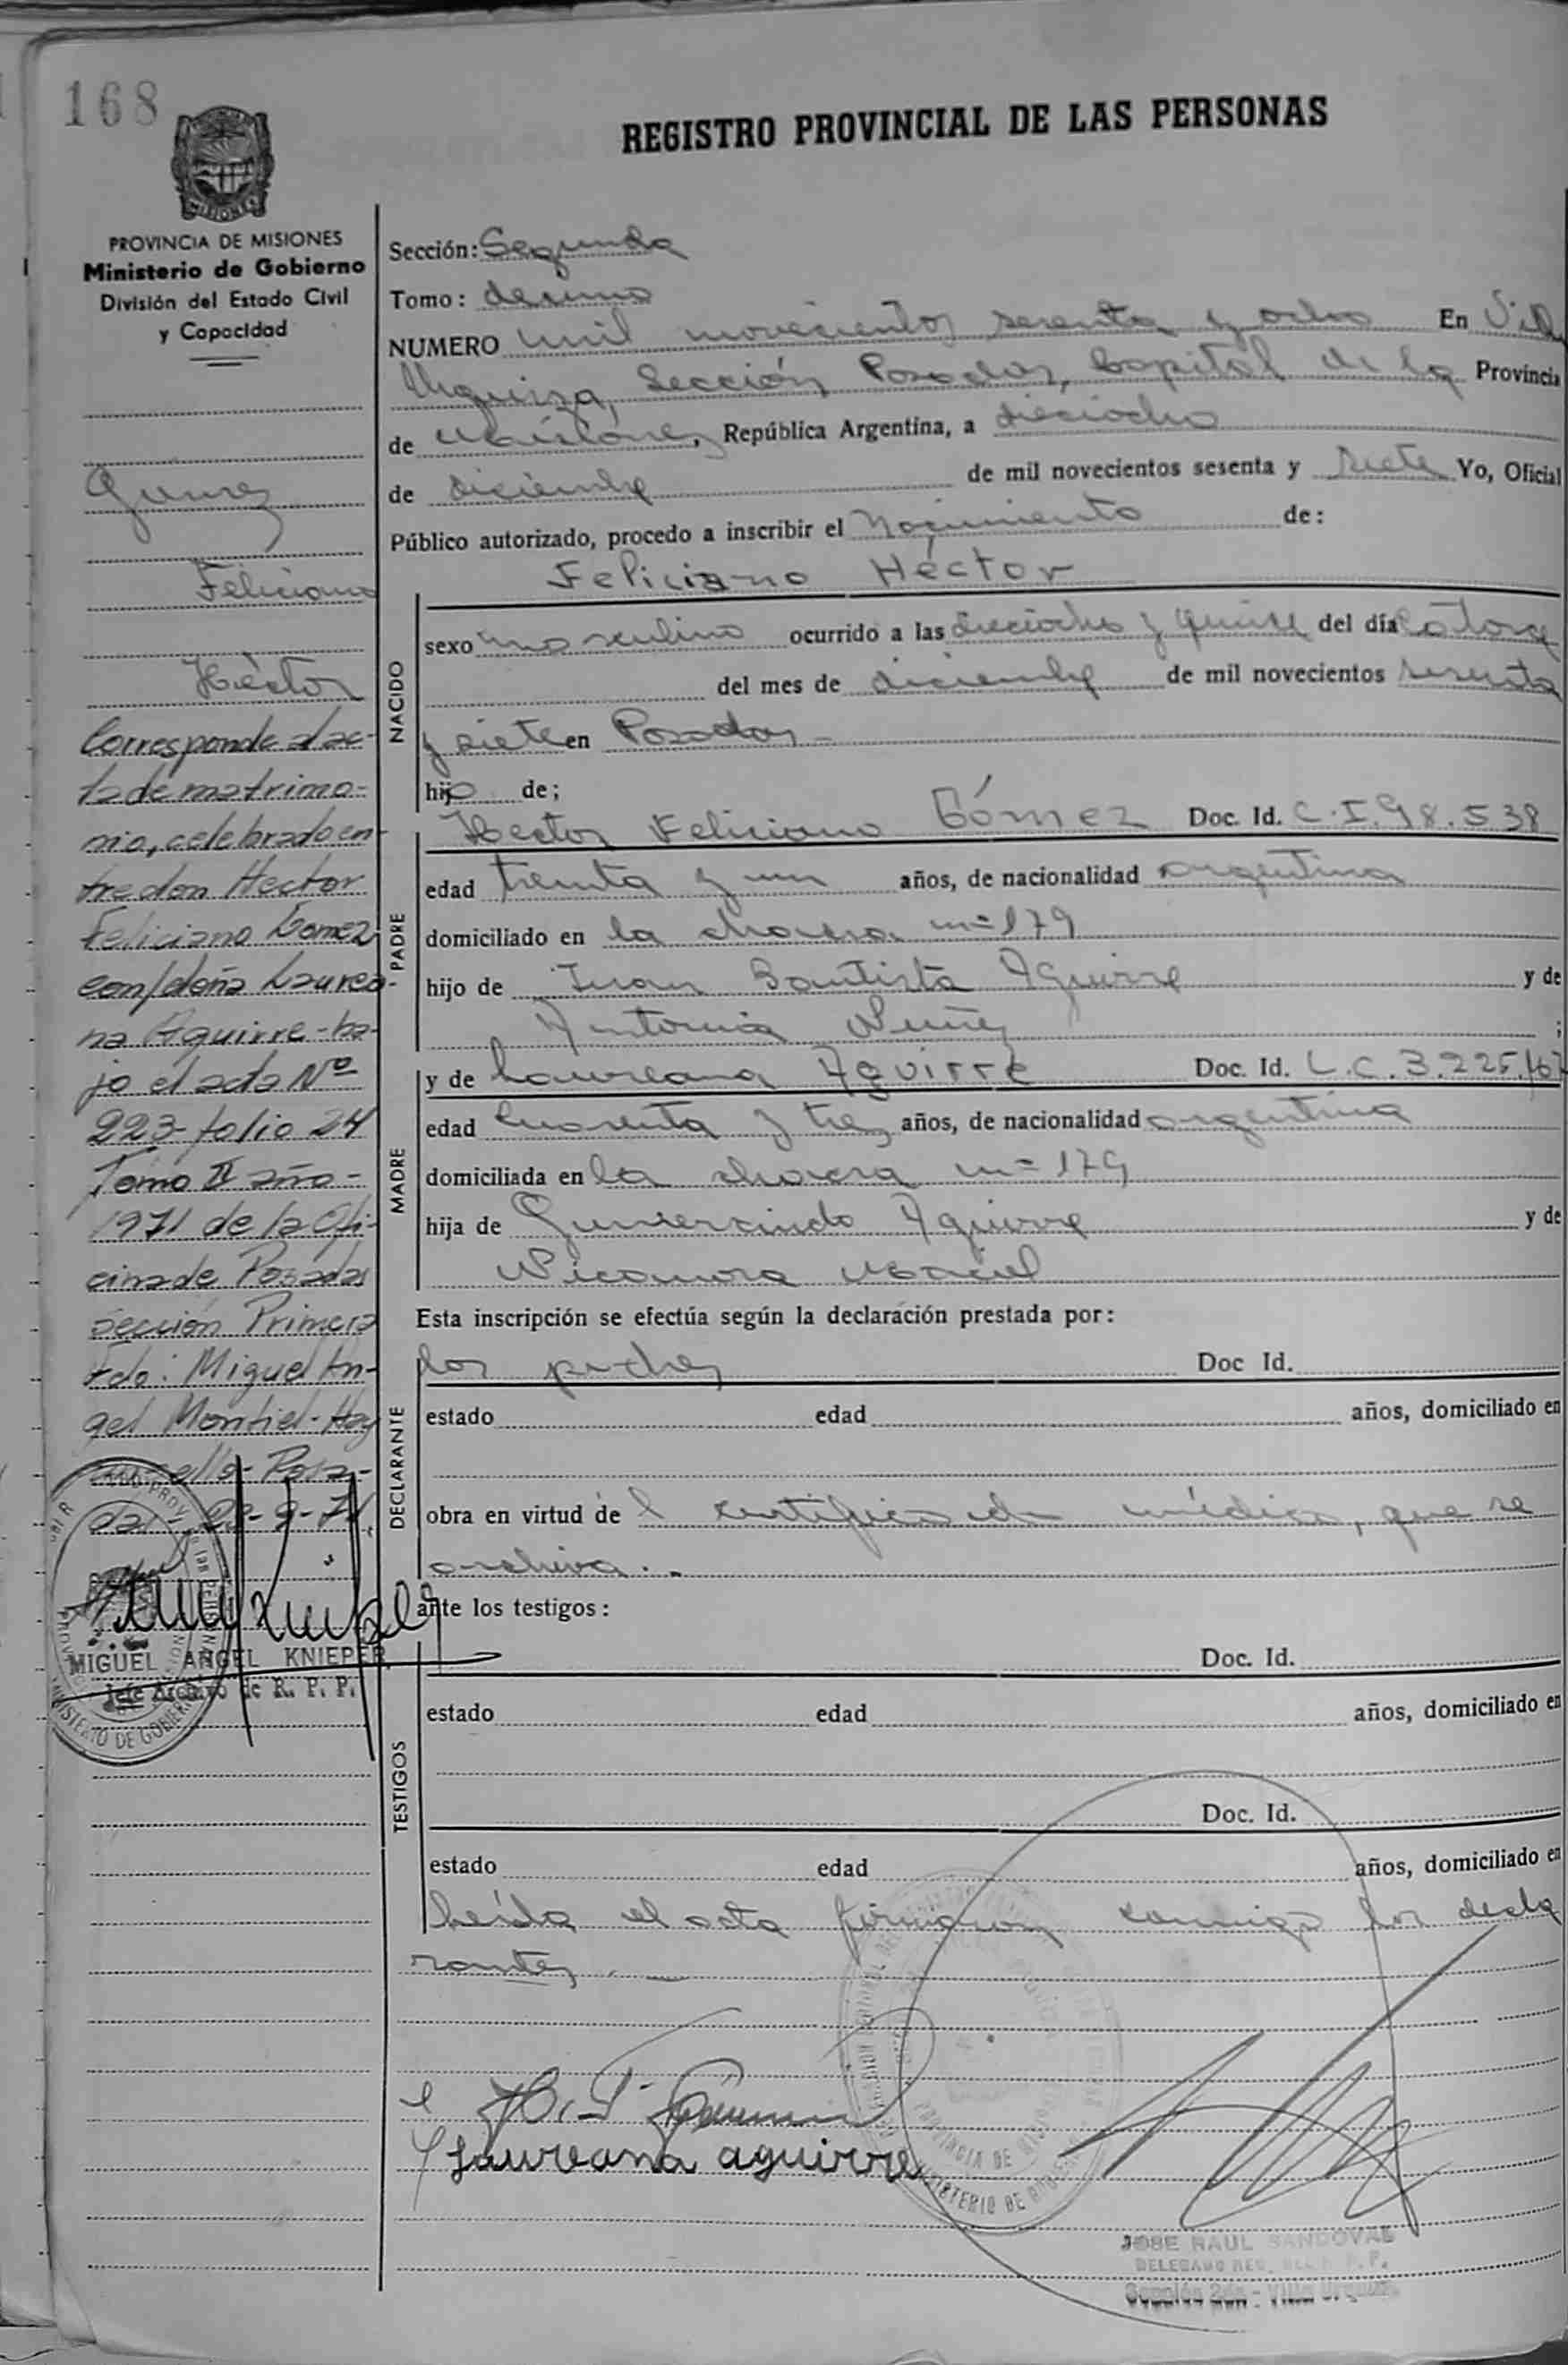 168
REGISTRO PROVINCIAL DE LAS PERSONAS
MISIONES
PROVINCIA DE MISIONES
Ministerio de Gobierno
División del Estado Civil
y Capacidad
Gomez
Feliciano
Héctor
Corresponde al ac-
ta de matrimo-
nio, celebrado en-
tre don Hector
Feliciano Gomez
con/doña Laurea-
na Aguirre-ba-
jo el acta Nº
223-folio 24
Tomo II año-
1971 de la Ofi-
cina de Posadas
sección Primera
Fdo: Miguel An-
gel Montiel-Hay
un sello-Posa-
das
MIGUEL ANGEL KNIEPER
Jefe Archivo de R. P. P.
Sección: Segunda
Tomo: decimo
NUMERO mil novecientos sesenta y ocho En Villa
Urquiza, Sección Posadas, Capital de la Provincia
de Misiones, República Argentina, a dieciocho
de diciembre de mil novecientos sesenta y siete Yo, Oficial
Público autorizado, procedo a inscribir el Nacimiento de:
Feliciano Héctor
NACIDO
sexo masculino ocurrido a las dieciocho y quince del día catorce
del mes de diciembre de mil novecientos sesenta
y siete en Posadas
hijo de;
PADRE
Hector Feliciano Gómez Doc. Id. C.I.98.538
edad treinta y un años, de nacionalidad argentina
domiciliado en la chacra nº 179
hijo de Juan Bautista Aguirre y de
Antonia Nuñez ;
MADRE
y de Laureana Aguirre Doc. Id. L.C.3.225.
edad cuarenta y tres años, de nacionalidad argentina
domiciliada en la chacra nº 179
hija de Gumersindo Aguirre y de
Nicanora Maciel
Esta inscripción se efectúa según la declaración prestada por:
DECLARANTE
los padres Doc Id.
estado edad años, domiciliado en
obra en virtud del certificado médico, que se
archiva.-
ante los testigos:
TESTIGOS
Doc. Id.
estado edad años, domiciliado en
Doc. Id.
estado edad años, domiciliado en
Leída el acta firmaron conmigo los decla
rantes.
Laureana aguirre
JOSE RAUL SANDOVAL
Sección 2da - Villa Urquiza